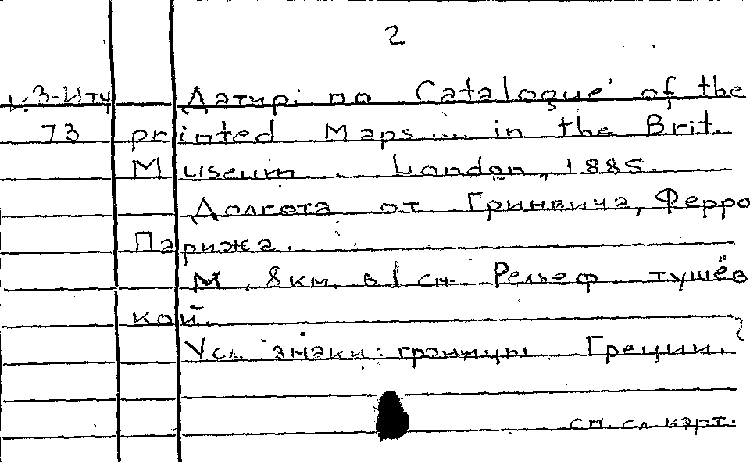 2
к.3-Итч Датир. по Catalogue of the
73 printed Maps... in the Brit.
Museum. London, 1885.
Долгота от Гринвича, Ферро
Парижа.
М. 8км. в 1 см. Рельеф тушёв
кой.
Усл. знаки: границы Греции.
см. сл. карт.